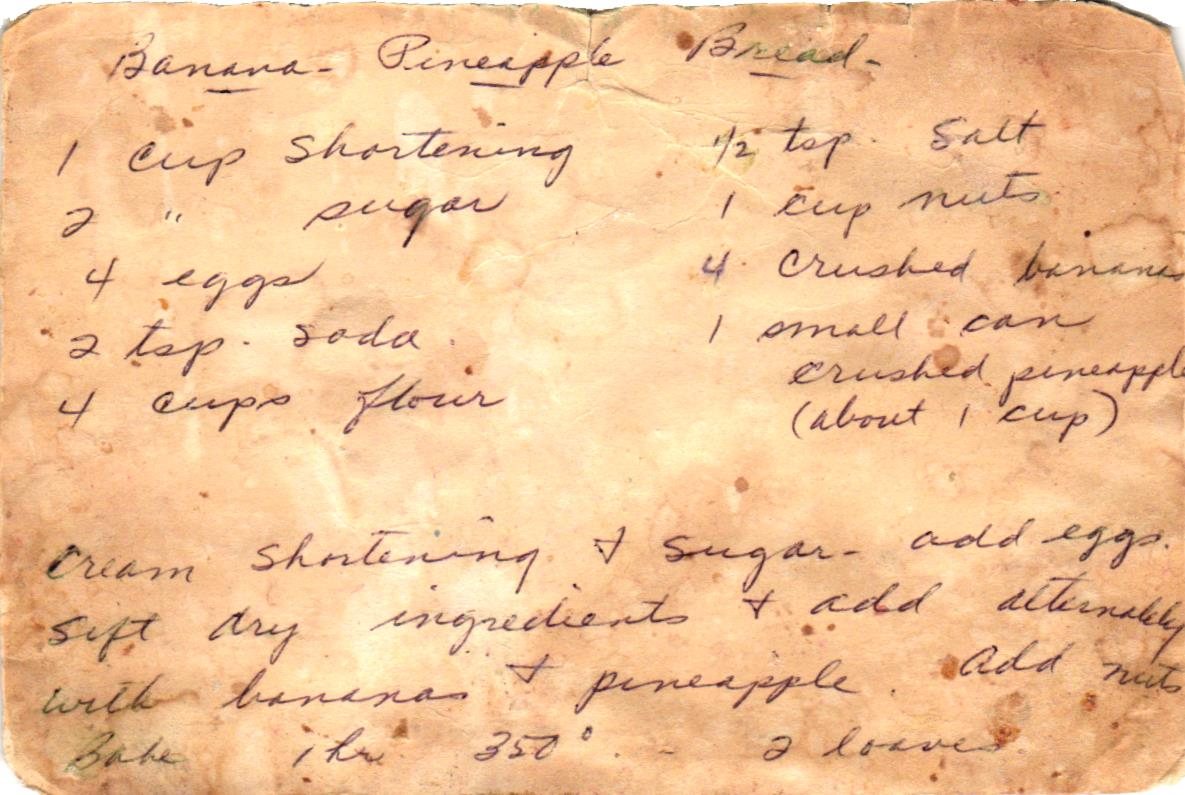 Banana - Pineapple Bread -
1 cup shortening
2 " sugar
4 eggs
2 tsp. soda
4 cups flour
1/2 tsp. Salt
1 cup nuts
4 crushed bananas
1 small can
crushed pineapple
(about 1 cup)
Cream shortening & sugar - add eggs.
Sift dry ingredients & add alternately
with bananas & pineapple. Add nuts
Bake 1 hr 350°. - 2 loaves.